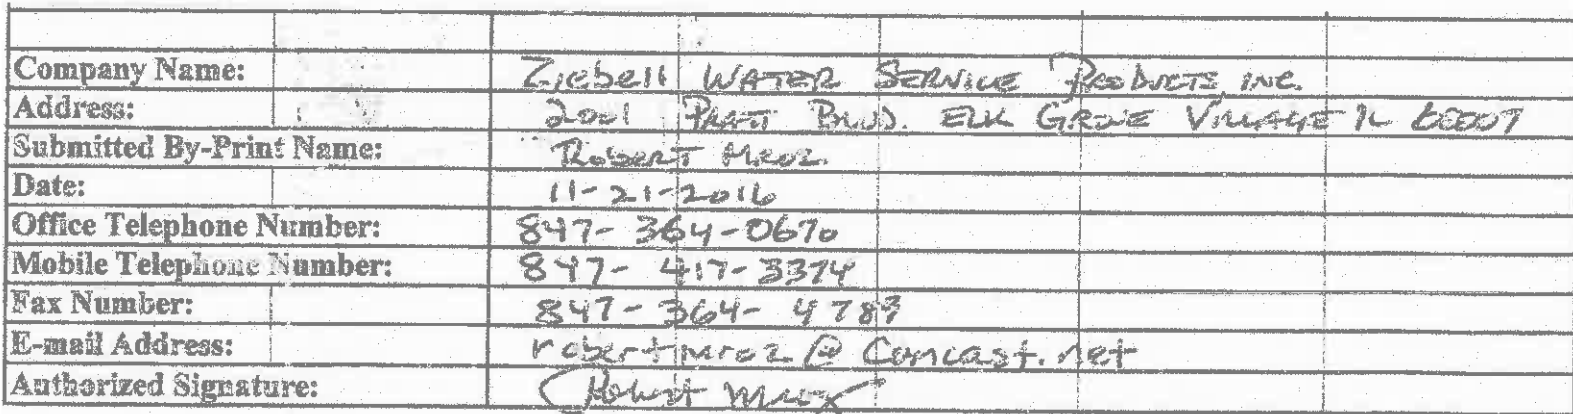 Company Name: Ziebell WATER SERVICE PRODUCTS, INC.
Address: 2001 PRATT BLVD. ELK GROVE VILLAGE IL 60007
Submitted By-Print Name: ROBERT MROZ.
Date: 11-21-2016
Office Telephone Number: 847-364-0670
Mobile Telephone Number: 847-417-3374
Fax Number: 847-364-4783
E-mail Address: robertmroz@Comcast.net
Authorized Signature: Robert Mroz